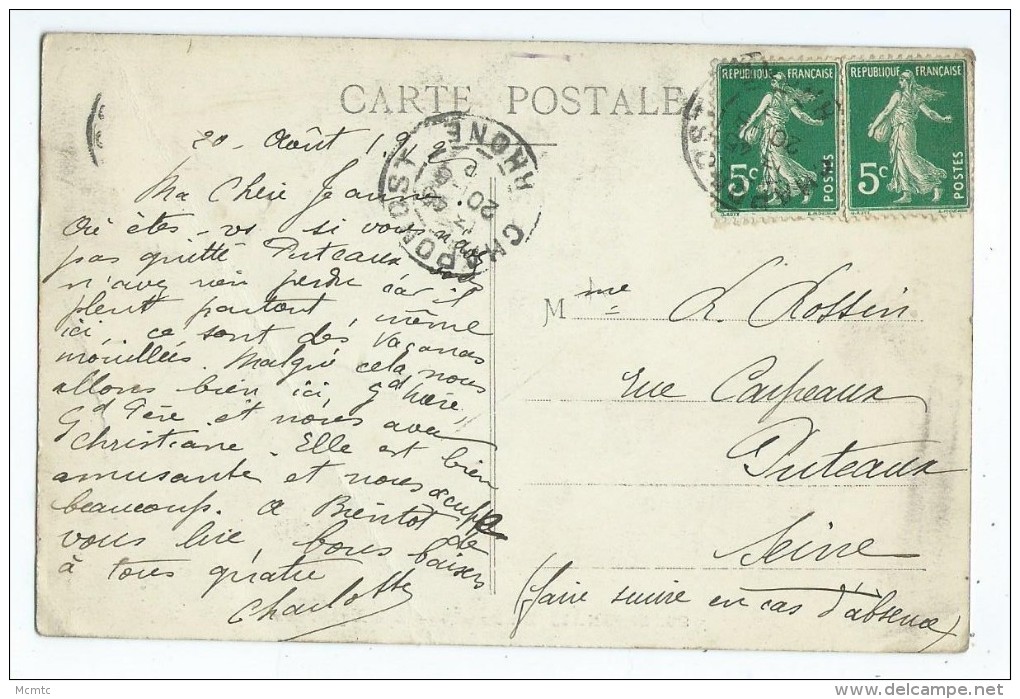 CARTE POSTALE
REPUBLIQUE FRANÇAISE
5c
POSTES
REPUBLIQUE FRANÇAISE
5c
POSTES
CHAPONOST
RHONE
20
20 - Août 1912
Ma Chère Jeanne
Où êtes-vs si vous
pas quitté Puteaux vous
n'avez rien perdu car il
pleut partout, même
ici, ce sont des vacances
mouillées. Malgré cela nous
allons bien ici, Gd Mère,
Gd Père et nous avec
Christiane. Elle est bien
amusante et nous occupe
beaucoup. A Bientot de
vous lire, bons baisers
à tous quatre
Charlotte
Mme L. Lossin
rue Carpeaux
Puteaux
Seine
(faire suivre en cas d'absence)
Mcmtc
delcampe.net